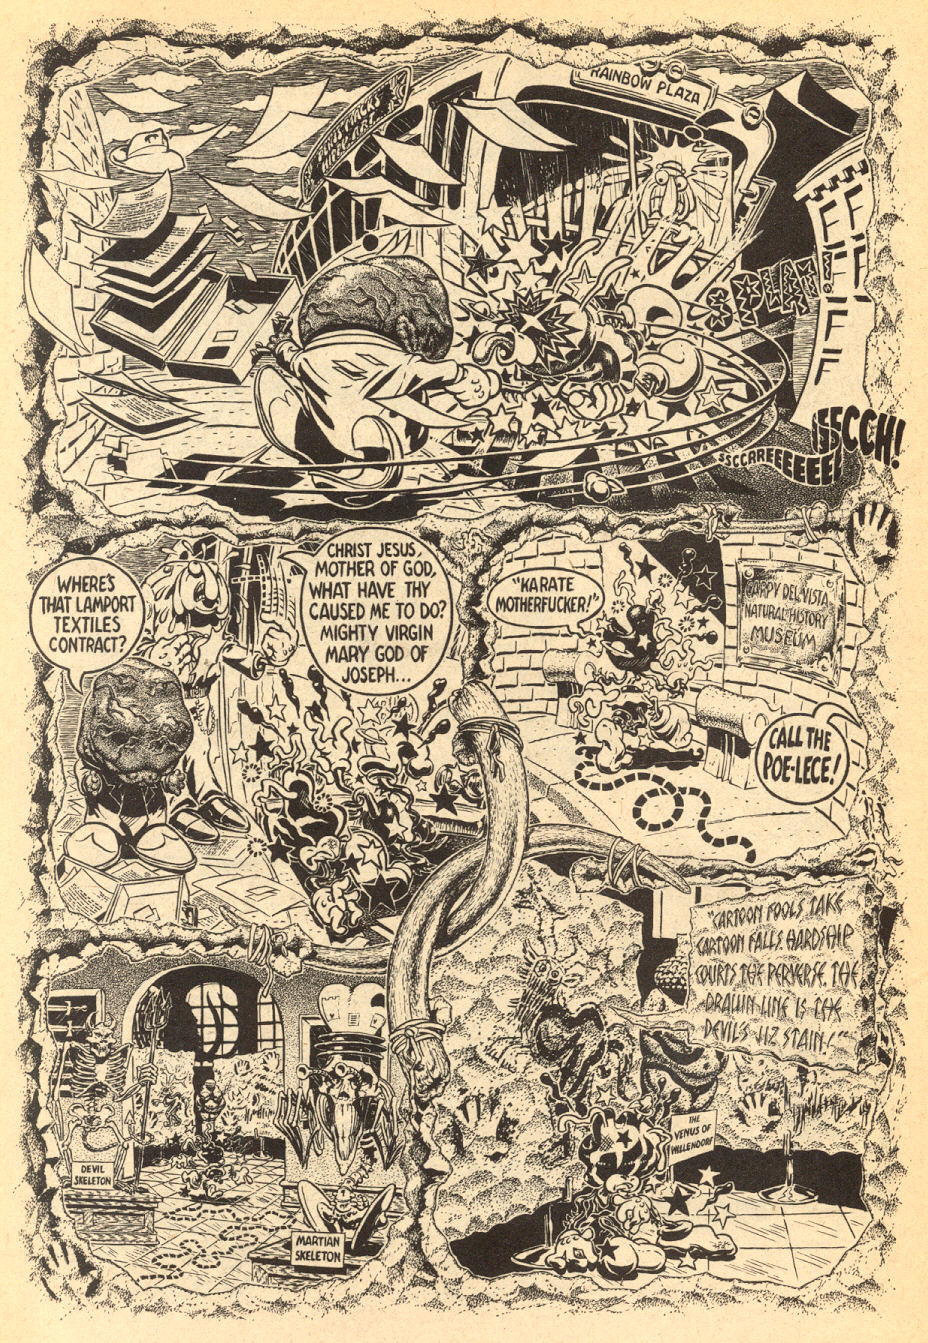 RAINBOW PLAZA
SPLAM
SSCCAREEEEEEE
SSSCCH!
EEEE
FFF
WHERE'S
THAT LAMPORT
TEXTILES
CONTRACT?
CHRIST JESUS,
MOTHER OF GOD,
WHAT HAVE THY
CAUSED ME TO DO?
MIGHTY VIRGIN
MARY GOD OF
JOSEPH...
"KARATE
MOTHERFUCKER!"
GARPY DEL VISTA
NATURAL HISTORY
MUSEUM
CALL THE
POE-LECE!
DEVIL
SKELETON
MARTIAN
SKELETON
"CARTOON FOOLS TAKE
CARTOON FALLS HARDSHIP
COURTS THE PERVERSE. THE
DRAWN LINE IS THE
DEVIL'S JIZ STAIN!"
THE
VENUS OF
WILLENDORF